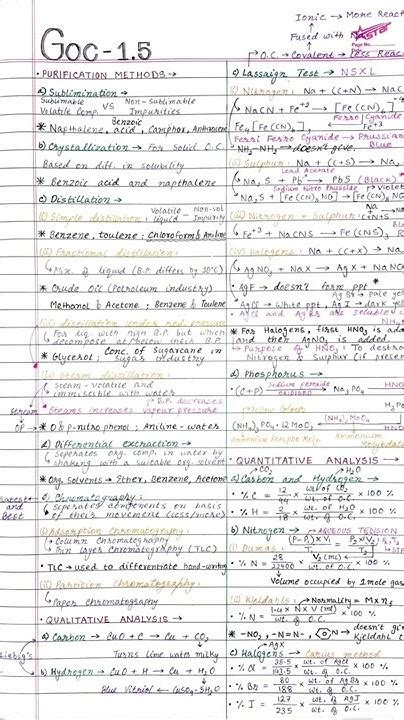 Ionic → More React
Fused with
GOC-1.5
O.C. → Covalent → Less Reac
• PURIFICATION METHODS →
a) Sublimination →
Sublimable VS Non-sublimable
Volatile Comp. Impurities
Benzoic
* Napthalene, acid, Camphor, Anthracene
b) Crystallization → For Solid O.C.
Based on diff. in solubility
* Benzoic acid and napthalene
c) Distillation →
(i) Simple distillation: Volatile liquid — Non-vol Impurity
Benzene, toluene; Chloroform & Aniline
(ii) Fractional distillation:
Mix. of liquid (B.P. differs by 10°C)
* Crude Oil (Petroleum industry)
Methanol & Acetone; Benzene & Toulene
(iii) distillation under red. pressure
For liq. with high B.P. but which
decompose at/below their B.P.
* Glycerol; Conc. of Sugarcane in Sugar industry
(iv) Steam distillation:
Steam-volatile and
immiscible with water
B.P. decreases
Steams increases vapour pressure
* O & P-nitro phenol; Aniline-water
d) Differential extraction →
Seperates org. comp. in water by
shaking with a suitable org. solvent
* Org. Solvents → Ether, Benzene, Acetone
e) Chromatography:
Latest and Best
Seperated components on basis
of their movement (less/more)
(i) Adsorption Chromatography:
Column Chromatography
Thin layer Chromatography (TLC)
TLC → used to differentiate hand-writing
(ii) Partition Chromatography:
Paper Chromatography
• QUALITATIVE ANALYSIS →
a) Carbon → CuO + C → Cu + CO₂
Turns lime water milky
Liebig's
b) Hydrogen → CuO + H → Cu + H₂O
Blue Vitriol ← CuSO₄·5H₂O
c) Lassaign Test → N S X L
(i) Nitrogen: Na + (C+N) → NaC
NaCN + Fe⁺² → [Fe(CN)₆]
Ferro Cyanide
Fe₄[Fe(CN)₆] ← Fe⁺³
Ferri Ferro Cyanide → Prussian Blue
NH₂-NH₂ → doesn't give.
(ii) Sulphur: Na + (C+S) → Na
Lead Acetate
Na₂S + Pb → PbS (Black)
Sodium Nitro Prusside Violet
Na₂S + [Fe(CN)₅NO] → [Fe(CN)₅N
(iii) Nitrogen + Sulphur:
Fe⁺³ + NaCNS → Fe(CNS)₃ R
(iv) Halogens: Na + (C+X) → Na
AgNO₃ + NaX → AgX + NaNO
AgF → doesn't form ppt
AgBr → pale ye
AgCl → White ppt, AgI → dark yell
AgCl and AgBr are soluble
* For Halogens, first HNO₃ is ad
and then AgNO₃ is added
Purpose of HNO₃ → To destro
Nitrogen & Sulphur (if presen
d) Phosphorus →
(C+P) Sodium peroxide oxidised → Na₃PO₄ HN
Yellow Colour
(NH₄)₃PO₄·12MoO₃ ← (NH₄)₂MoO₄
Ammonium Phospho Molybdate Ammonium Molybdate
• QUANTITATIVE ANALYSIS →
CO₂ H₂O
a) Carbon and Hydrogen →
% C = 12/44 × wt. of CO₂/wt. of O.C. × 100 %
% H = 2/18 × wt. of H₂O/wt. of O.C. × 100 %
b) Nitrogen → AQUEOUS TENSION
(i) Dumas: (P-P₁)×V₁/T₁ = P₂×V₂/T₂
% N = 28/22400 × V₂(mL)/wt. of O.C. × 100 %
Volume occupied by 1 mole gas
(ii) Kjeldahls: Normality = M × n
% N = 1.4 × N × V(ml)/wt. of O.C. %
* -NO₂, -N=N-, doesn't gi Kjeldahl
AgX
c) Halogens → Carius method
% Cl = 35.5/143.5 × wt. of AgCl/wt. of O.C. × 100 %
% Br = 80/188 × wt. of AgBr/wt. of O.C. × 100 %
% I = 127/235 × wt. of AgI/wt. of O.C. × 100 %